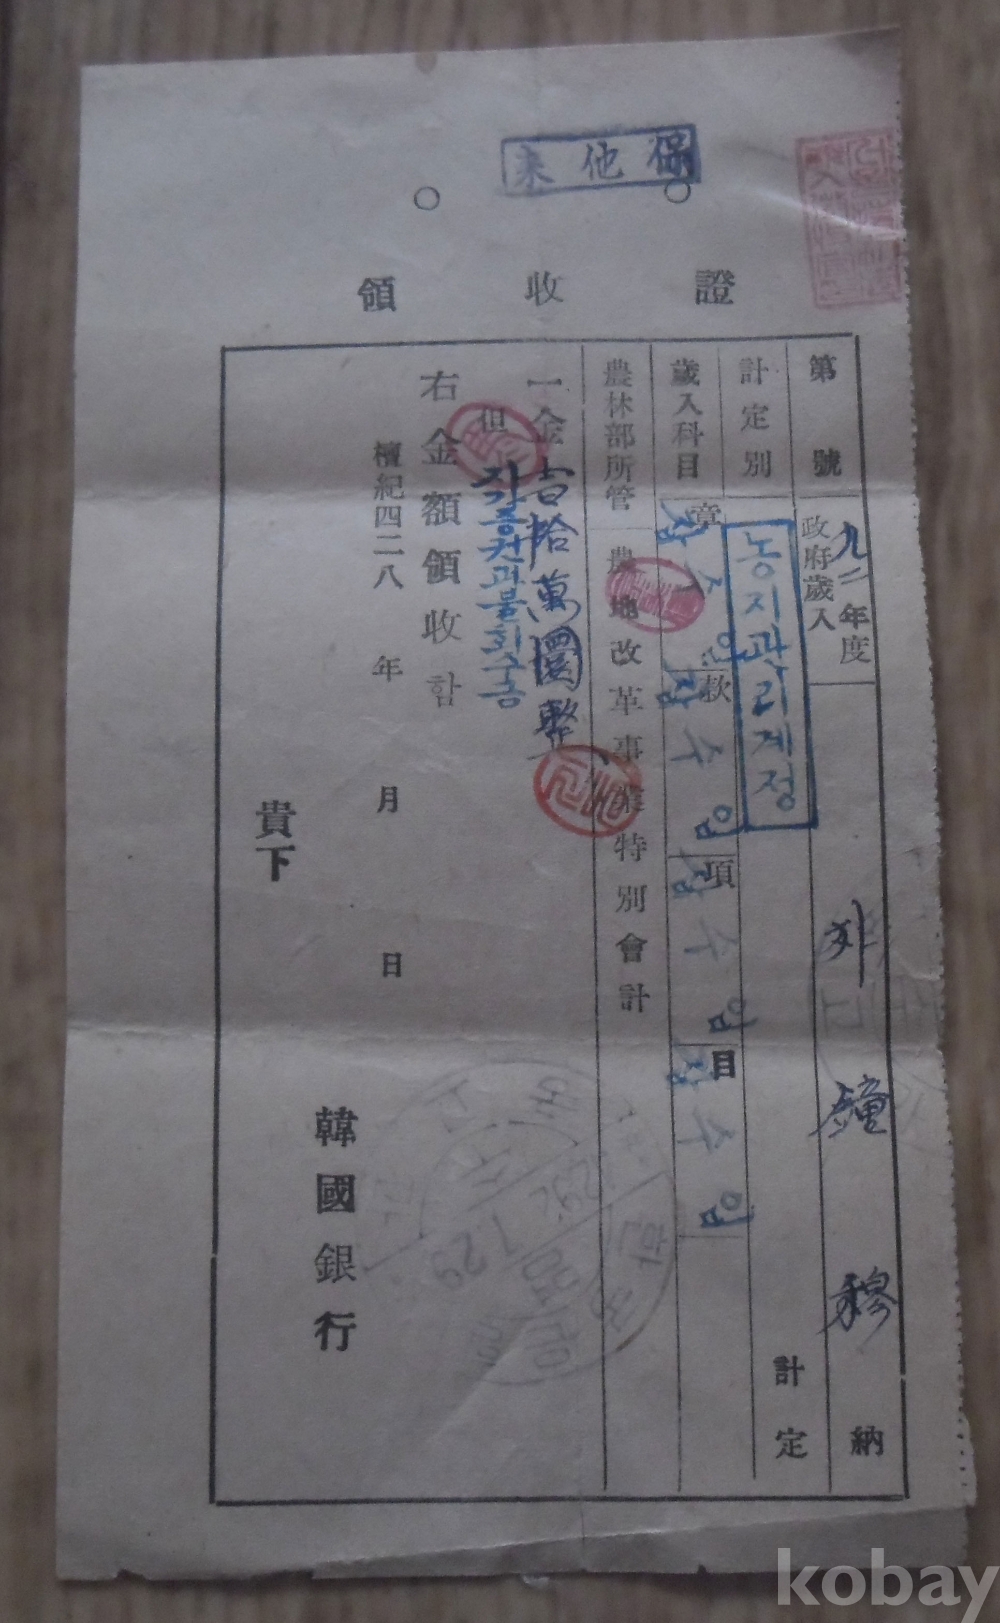 保他来
領收證
第 號 九二年度 政府歲入 朴鐘穆 納
計定別 농지관리계정 計定
歲入科目 章 잡수입 款 잡수입 項 잡수입 目 잡수입
農林部所管 農地改革事業特別會計
一金壹拾萬圜整
但 지가증권과불회수금
右金額領收함
檀紀四二八 年 月 日
韓國銀行
貴下
7.29
kobay